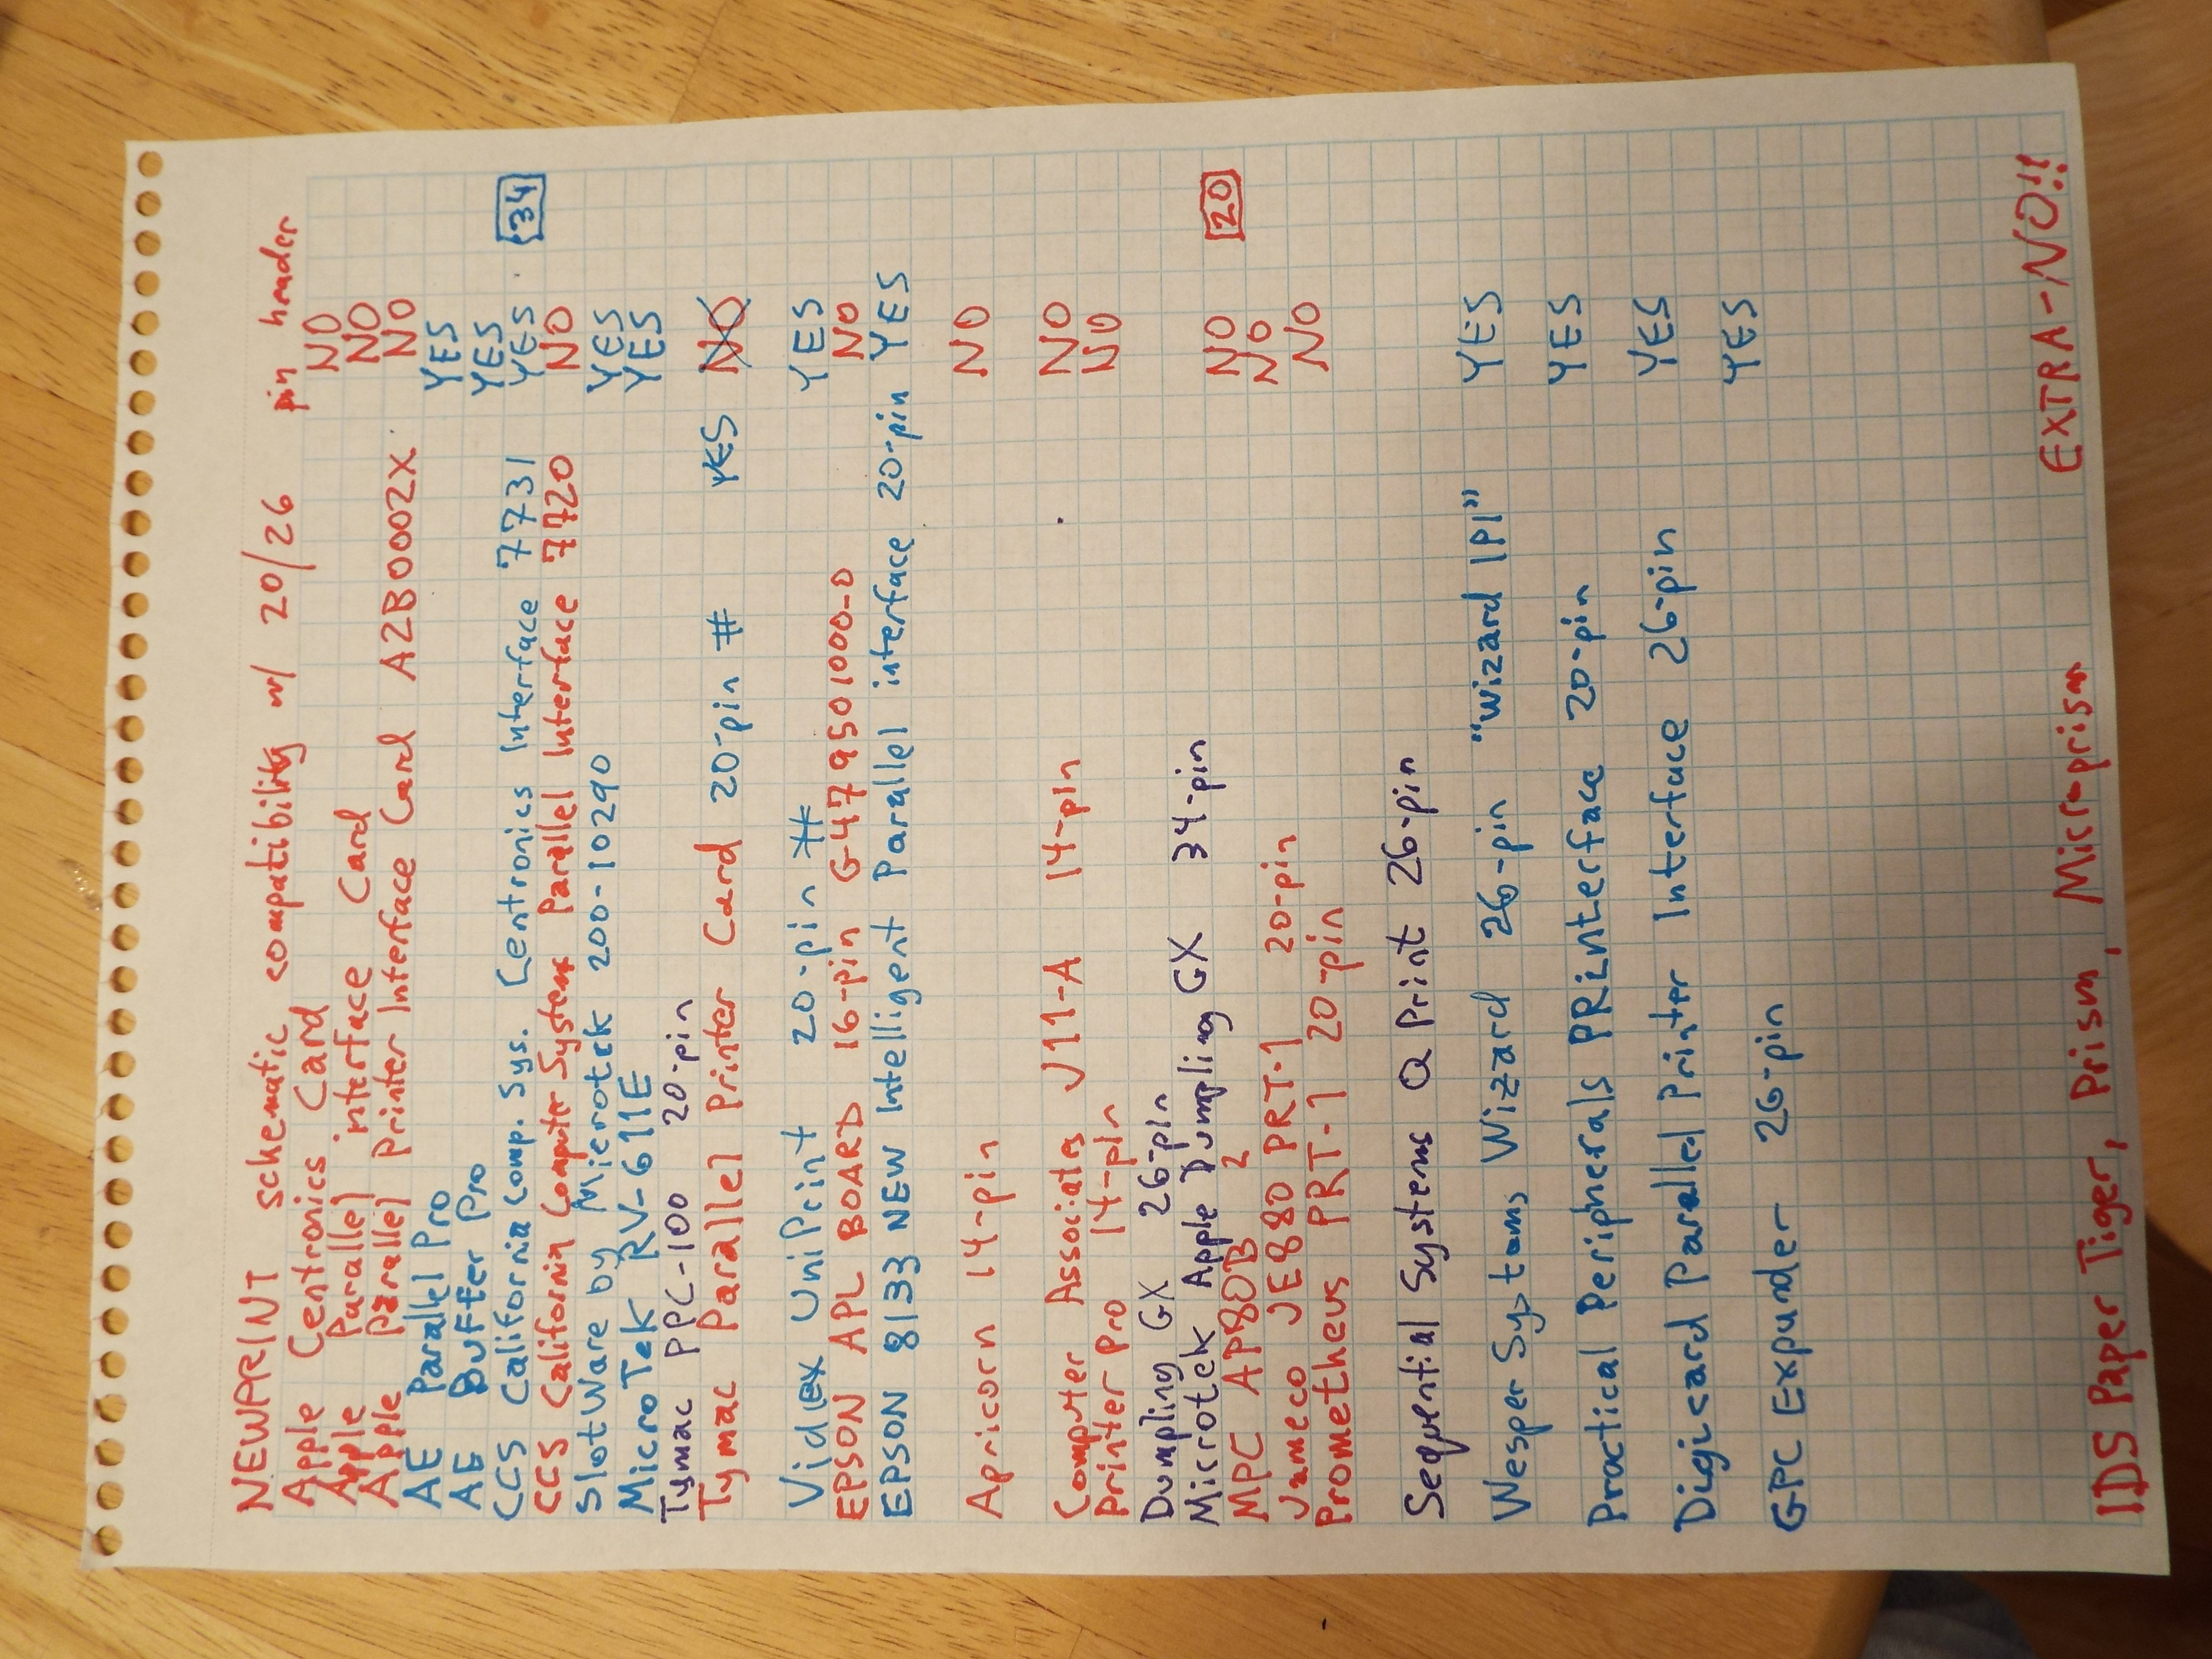 NEWPRINT schematic compatibility w/ 20/26 pin header
Apple Centronics Card NO
Apple Parallel interface Card NO
Apple Parallel Printer Interface Card A2B0002X NO
AE Parallel Pro YES
AE Buffer Pro YES
CCS California Comp. Sys. Centronics Interface 7731 YES 34
CCS California Computer Systems Parallel Interface 7720 NO
SlotWare by Microtek 200-10290 YES
MicroTek RV-611E YES
Tymac PPC-100 20-pin
Tymac Parallel Printer Card 20-pin # YES NO
Videx UniPrint 20-pin # YES
EPSON APL BOARD 16-pin G-479501000-0 NO
EPSON 8133 NEW Intelligent Parallel interface 20-pin YES
Apricorn 14-pin NO
Computer Associates V11-A 14-pin NO
Printer Pro 14-pin NO
Dumpling GX 26-pin
Microtek Apple Dumpling GX 34-pin
MPC AP80B 2 NO 20
Jameco JE880 PRT-1 20-pin NO
Prometheus PRT-1 20-pin NO
Sequential Systems Q Print 26-pin
Wesper Systems Wizard 26-pin "Wizard IPI" YES
Practical Peripherals PRinterface 20-pin YES
Digicard Parallel Printer Interface 26-pin YES
GPC Expander 26-pin YES
IDS Paper Tiger, Prism, Microprism EXTRA-NO!!